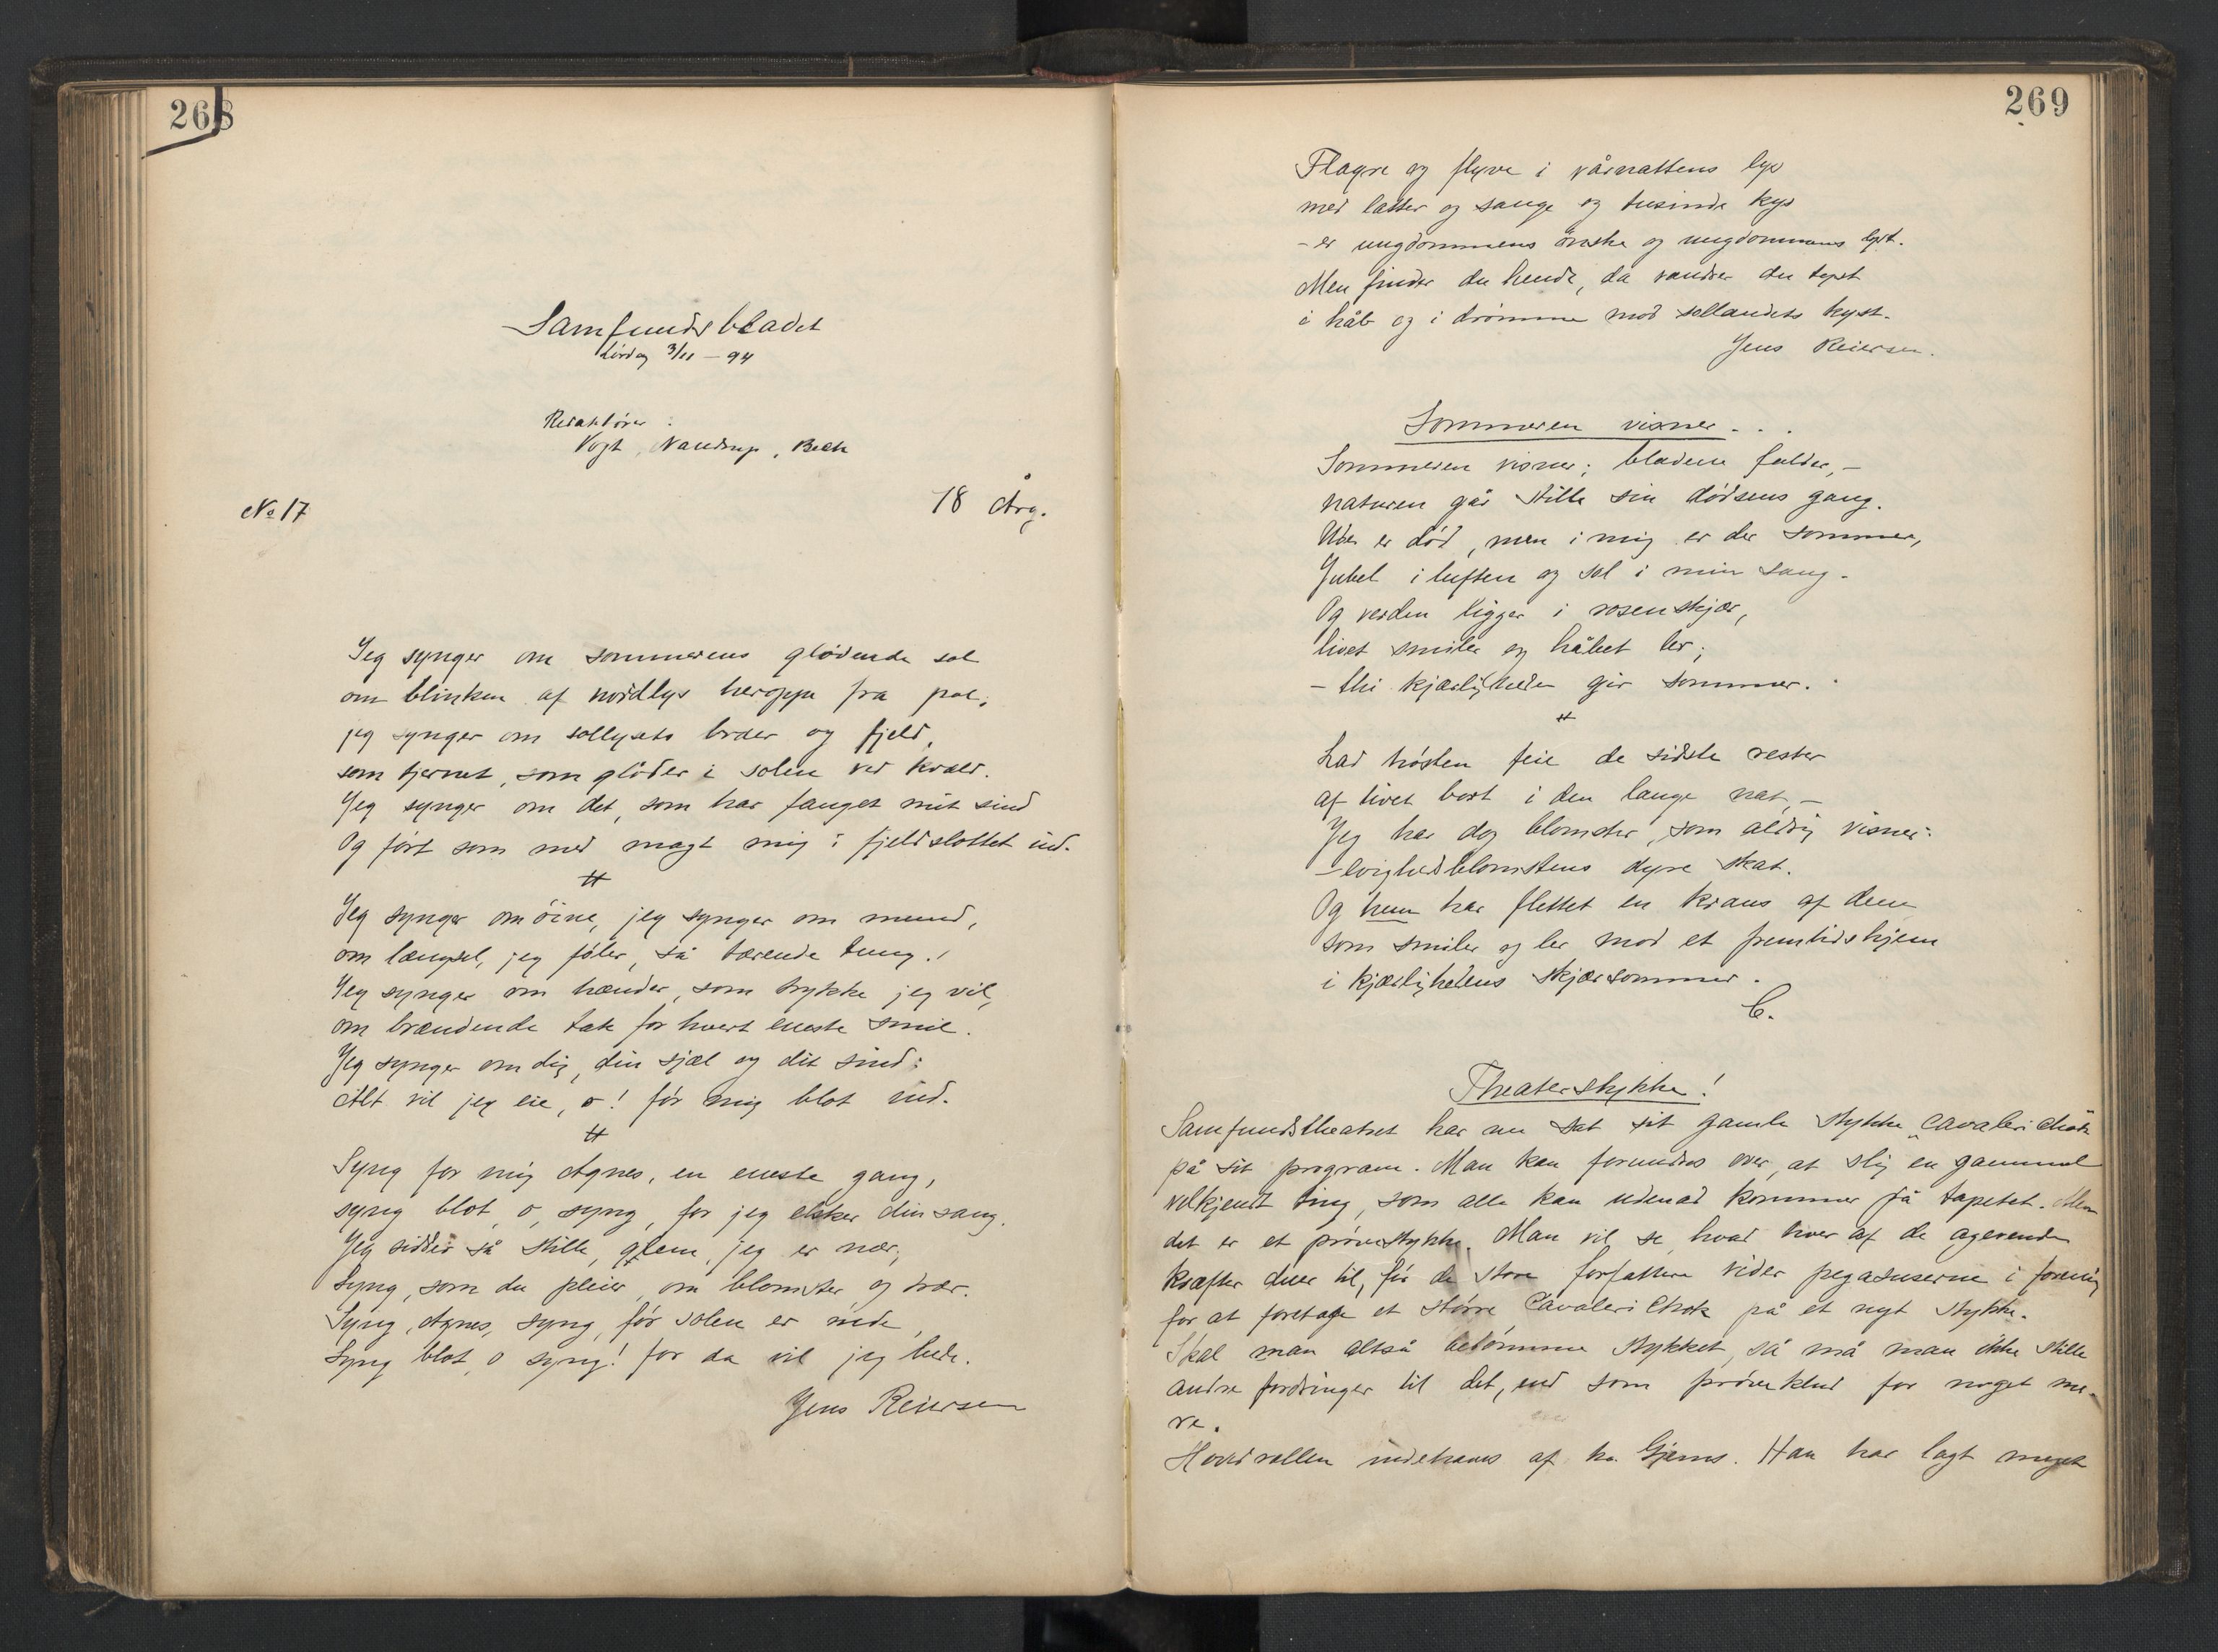 268
Samfundsbladet
Lørdag 3/11 – 94
Redaktører :
Vogt, Nandrup, Bech
No 17
18 Årg.
Jeg synger om sommerens glødende sol
om blinken af nordlys heroppe fra pol;
jeg synger om sollysets bræer og fjeld,
som tjernet, som glöder i solen ved kvæld.
Jeg synger om det, som har fanget mit sind
Og ført som med magt mig i fjeldslottet ind.
#
Jeg synger om öine, jeg synger om mund,
om længsel, jeg føler, så tærende tung!
Jeg synger om hænder, som trykke jeg vil,
om brændende tak for hvert eneste smil.
Jeg synger om dig, din sjæl og dit sind;
Alt vil jeg eie, o! før mig blot ind.
#
Syng for mig Agnes, en eneste gang,
syng blot, o, syng, for jeg elsker din sang.
Jeg sidder så stille, glem, jeg er nær;
Syng, som du pleier, om blomster og trær.
Syng, Agnes, syng, før solen er nede,
Syng blot, o syng! for da vil jeg bede.
Jens Reiersen
269
Flagre og flyve i vårnattens lys
med latter og sange og tusinde kys
– er ungdommens önske og ungdommens lyst.
Men finder du hende, da vandrer du tyst
i håb og i drömme mod sollandets kyst.
Jens Reiersen.
Sommeren visner...
Sommeren visner; bladene falder, –
naturen går stille sin dødsens gang.
Ude er død, men i mig er der sommer,
Jubel i luften og sol i min sang.
Og verden ligger i rosenskjær,
livet smiler og håbet ler;
– thi kjærligheden gir sommer.
#
Lad høsten feie de sidste rester
af livet bort i den lange nat, –
Jeg har dog blomster, som aldrig visner:
– evighedsblomstens dyre skat.
Og hun har flettet en krans af dem
som smiler og ler mod et fremtidshjem
i kjærlighedens skjærsommer.
C.
Theaterstykke!
Samfundstheatret har nu sat sit gamle stykke „Cavaleri Chok
på sit program. Man kan forundres over, at slig en gammel
velkjendt ting, som alle kan udenad kommer på tapetet. Men
det er et prøvestykke. Man vil se hvad hver af de agerende
kræfter duer til, før de store forfattere rider pegasuserne i forening
for at foretage et større Cavaleri Chok på et nyt stykke.
Skal man altså bedømme stykket, så må man ikke stille
andre fordringer til det, end som prøveklud for noget me-
re.
Hovedrollen indehaves af hr. Gjems. Han har lagt meget